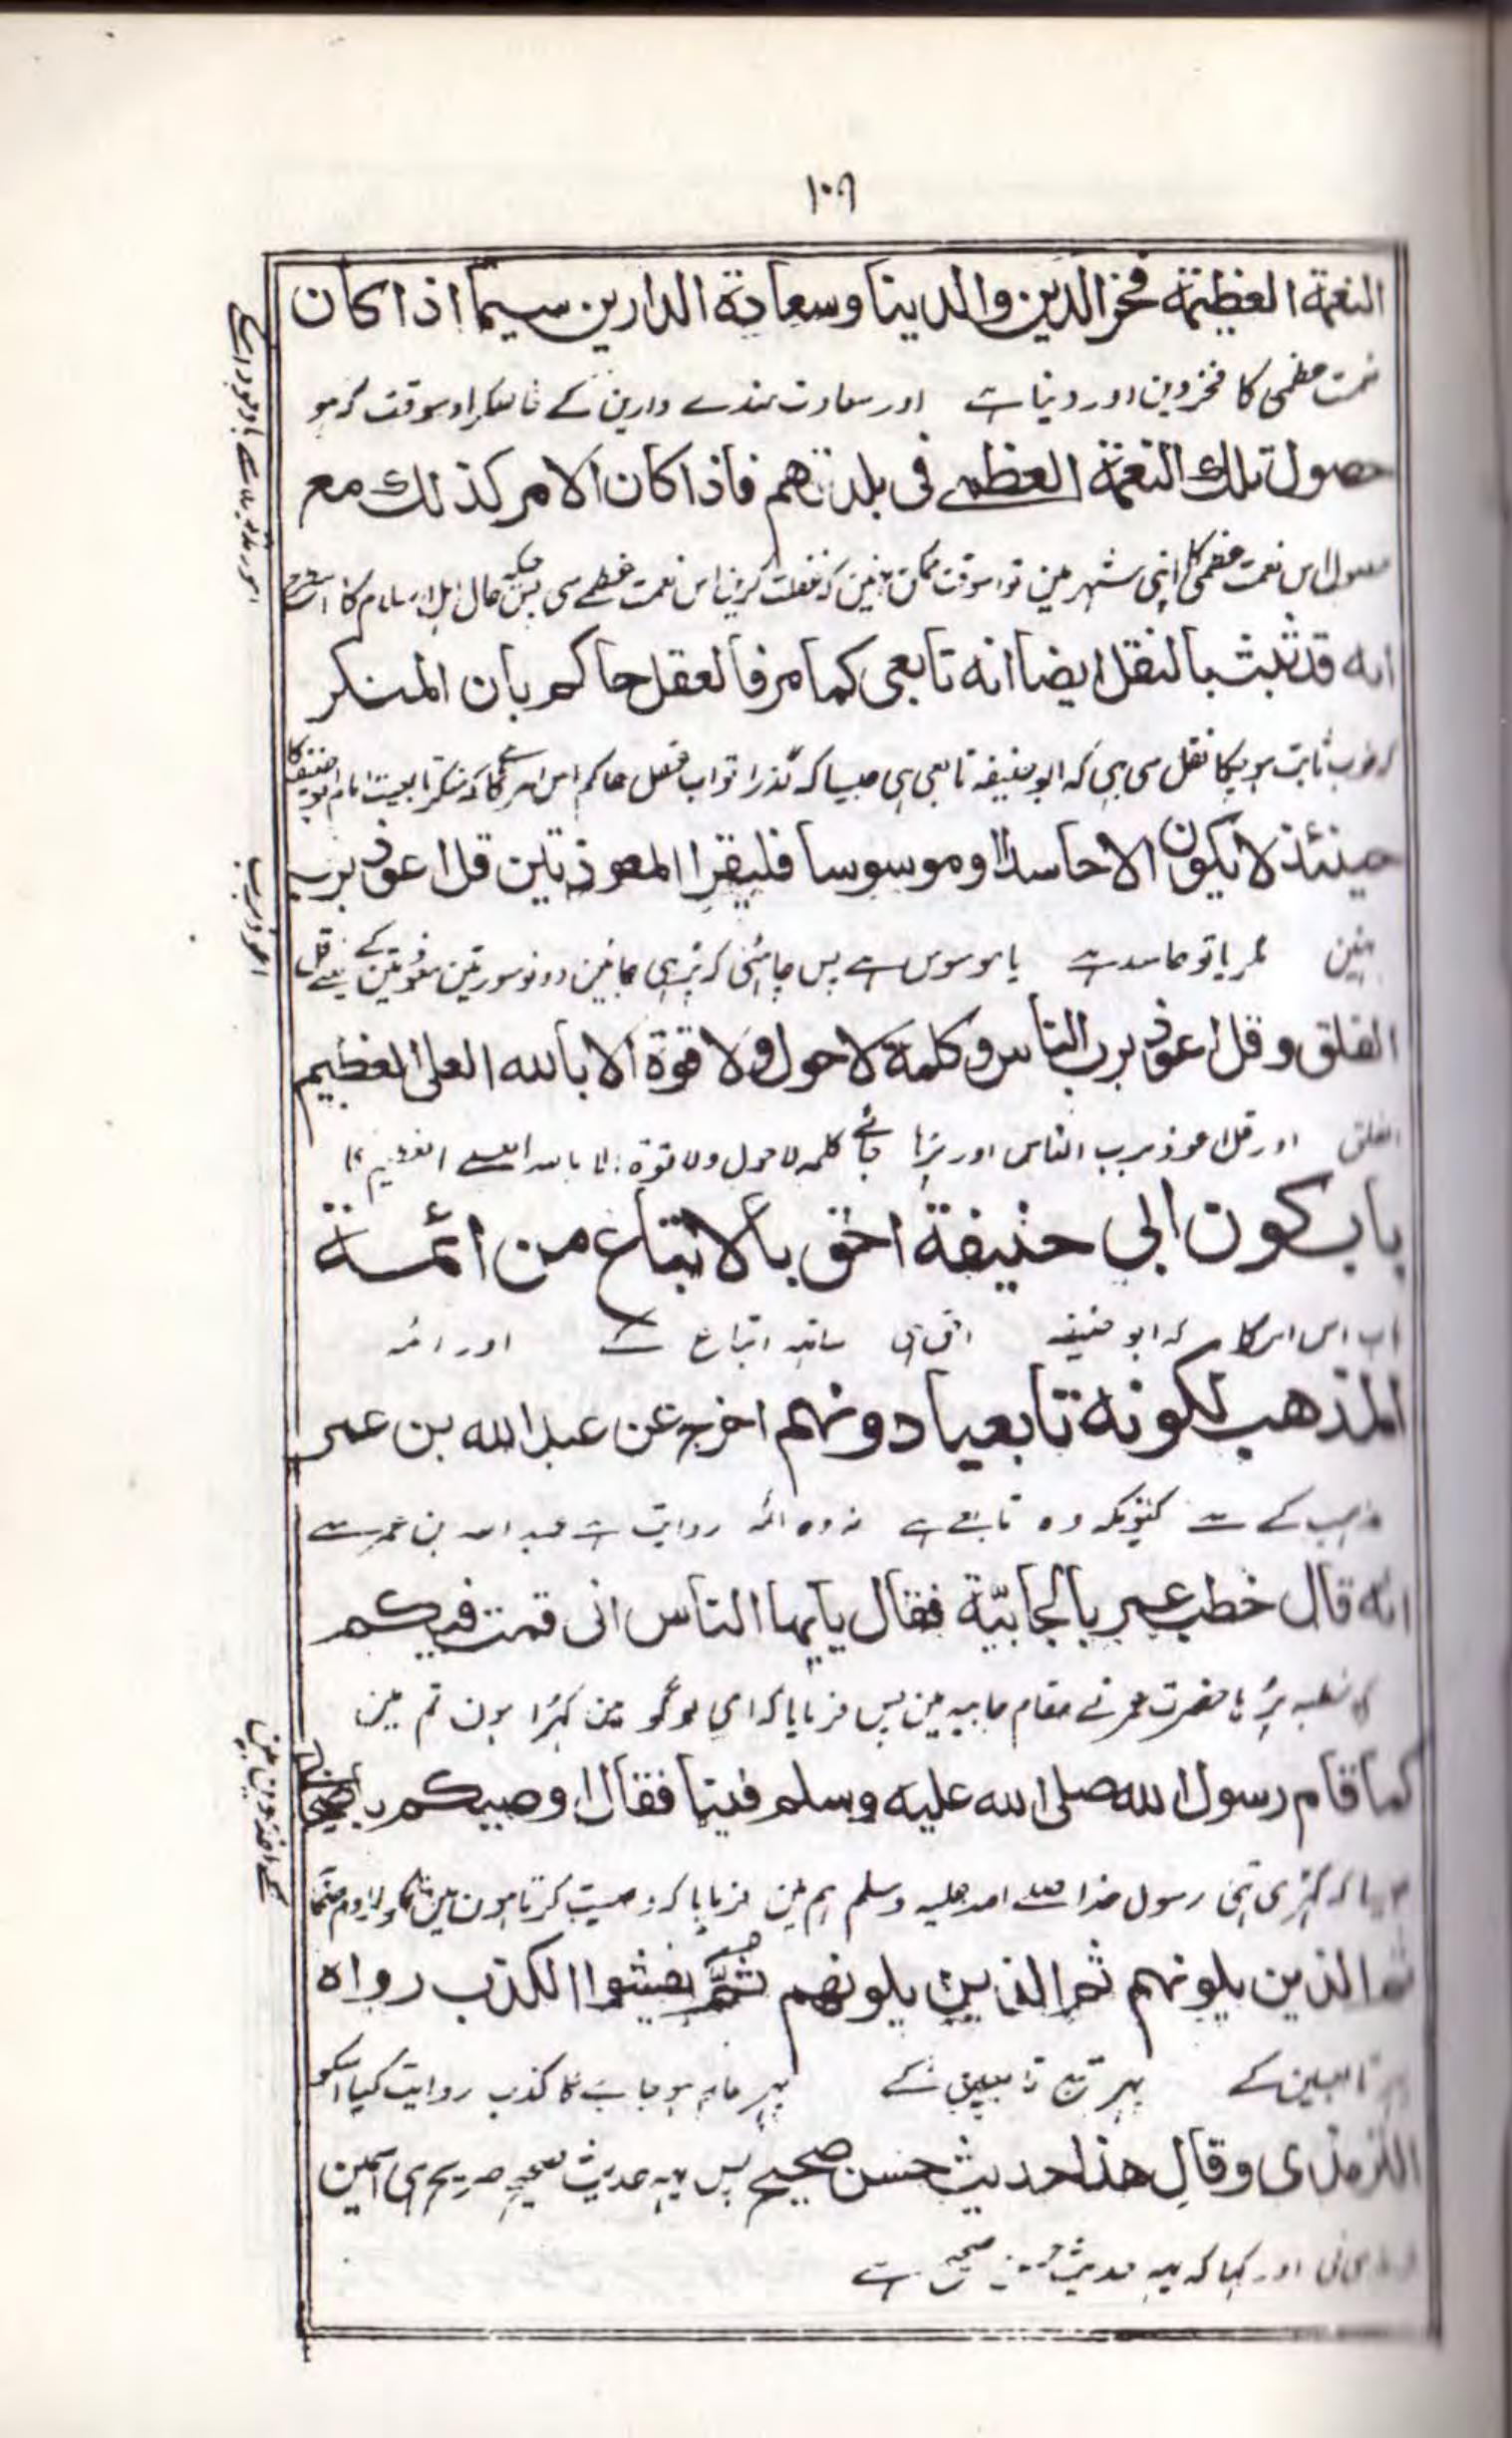 ۱۰۹
النعمة العظيمة فخر الدين والدينا وسعادة الدارين سيما اذا كان
نعمت عظمی کا فخر دین اور دنیا ہے اور سعادت مندے دارین کے خاصکر اوسوقت کہ ہو
حصول تلك النعمة العظمے فى بلدتهم فاذا كان الامر كذلك مع
حصول اس نعمت عظمی کا اپنی شہر مین تو اسوقت ممکن نہین کہ غفلت کرین اس نعمت عظمے سی پس جبکہ حال اہل اسلام کا
انه قد ثبت بالنقل ايضا انه تابعى كما مر فالعقل حاكم بان المنكر
ثابت ہو چکا نقل سی بہی کہ ابو حنیفہ تابعی ہی جیسا کہ گذرا تو اب عقل حاکم اس امر کا کہ منکر تابعیت امام ابو حنیفہ کا
حينئذ لا يكون الا حاسدا او موسوسا فليقرا المعوذتين قل اعوذ برب
نہین مگر یا تو حاسد ہے یا موسوس ہے پس چاہئی کہ پڑہی دونو سورتین معوذتین کے یعنے قل
اعوذ برب
الفلق وقل اعوذ برب الناس وكلمة لا حول ولا قوة الا بالله العلى العظيم
الفلق اور قل اعوذ برب الناس اور پڑہا جائے کلمہ لا حول ولا قوۃ الا باللہ العلے العظیم
باب كون ابي حنيفة احق بالاتباع من ائمة
باب اس امر کا کہ ابو حنیفہ احق ہی ساتہہ اتباع کے اور ائمہ
المذهب لكونه تابعيا دونهم اخرج عن عبد الله بن عمر
مذہب کے سے کیونکہ وہ تابعے ہے نہ وہ ائمہ روایت ہے عبد اللہ بن عمر سے
انه قال خطب عمر بالجابيّة فقال يايها الناس انى قمت فيكم
کہ خطبہ پڑہا حضرت عمر نے مقام جابیہ مین پس فرمایا کہ ای لوگو مین کہڑا ہون تم مین
كما قام رسول الله صلى الله عليه وسلم فينا فقال اوصيكم باصحابى
جیسا کہ کہڑی تہی رسول خدا صلے اللہ علیہ وسلم ہم مین فرمایا کہ وصیت کرتا ہون مین تمکو
ثم الذين يلونهم ثم الذين يلونهم ثمّ يفشوا الكذب رواه
پہر تابعین کے پہر تبع تابعین کے پہر عام ہو جاے گا کذب روایت کیا اسکو
الترمذى وقال هذا حديث حسن صحيح پس یہہ حدیث صحیح صریح ہی اسمین
اور کہا کہ یہہ حدیث حسن صحیح ہے